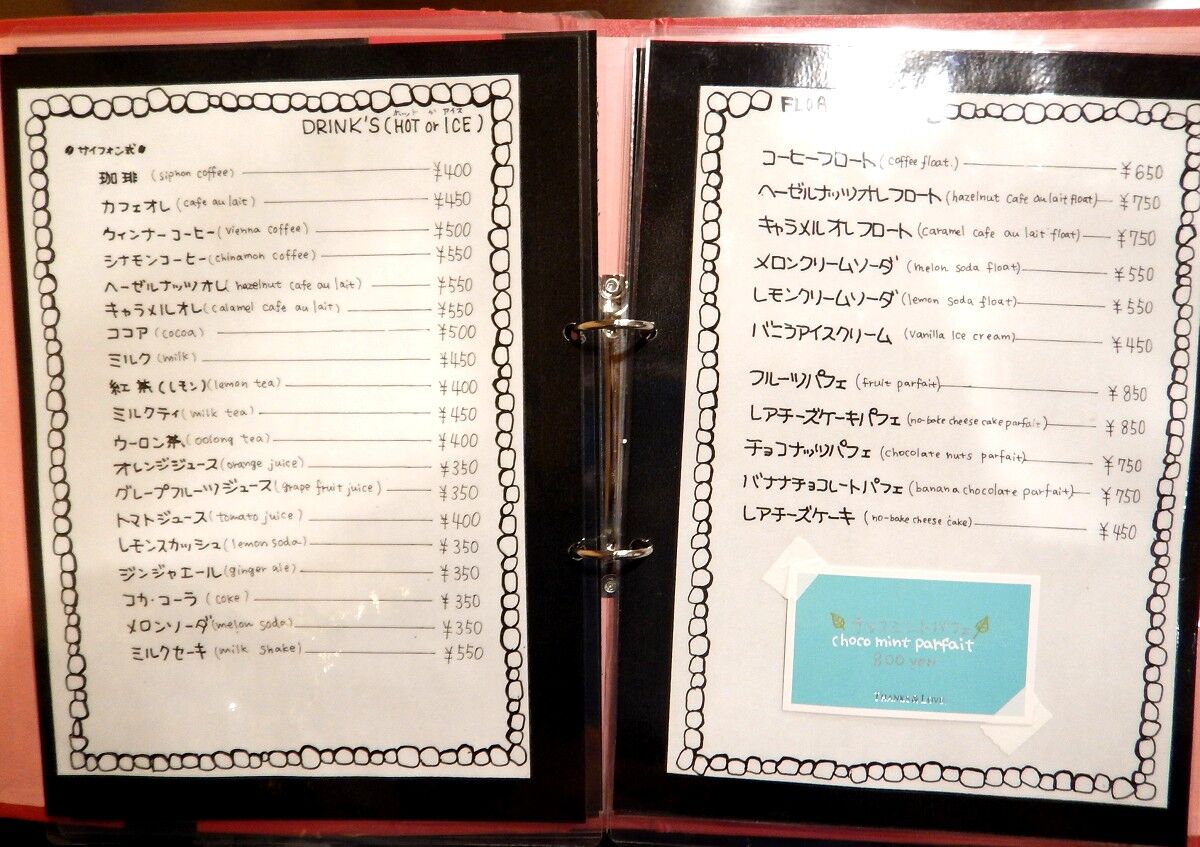 ホット か アイス
DRINK'S (HOT or ICE)
●サイフォン式●
珈琲 (siphon coffee) ¥400
カフェオレ (cafe au lait) ¥450
ウィンナーコーヒー (vienna coffee) ¥500
シナモンコーヒー (chinamon coffee) ¥550
ヘーゼルナッツオレ (hazelnut cafe au lait) ¥550
キャラメルオレ (calamel cafe au lait) ¥550
ココア (cocoa) ¥500
ミルク (milk) ¥450
紅茶 (レモン) (lemon tea) ¥400
ミルクティ (milk tea) ¥450
ウーロン茶 (oolong tea) ¥400
オレンジジュース (orange juice) ¥350
グレープフルーツジュース (grape fruit juice) ¥350
トマトジュース (tomato juice) ¥400
レモンスカッシュ (lemon soda) ¥350
ジンジャエール (ginger ale) ¥350
コカ・コーラ (coke) ¥350
メロンソーダ (melon soda) ¥350
ミルクセーキ (milk shake) ¥550
FLOA
コーヒーフロート (coffee float.) ¥650
ヘーゼルナッツオレフロート (hazelnut cafe au lait float) ¥750
キャラメルオレフロート (caramel cafe au lait float) ¥750
メロンクリームソーダ (melon soda float) ¥550
レモンクリームソーダ (lemon soda float) ¥550
バニラアイスクリーム (Vanilla Ice cream) ¥450
フルーツパフェ (fruit parfait) ¥850
レアチーズケーキパフェ (no-bake cheese cake parfait) ¥850
チョコナッツパフェ (chocolate nuts parfait) ¥750
バナナチョコレートパフェ (banana chocolate parfait) ¥750
レアチーズケーキ (no-bake cheese cake) ¥450
チョコミントパフェ
choco mint parfait
800 yen
THANKS & LOVE